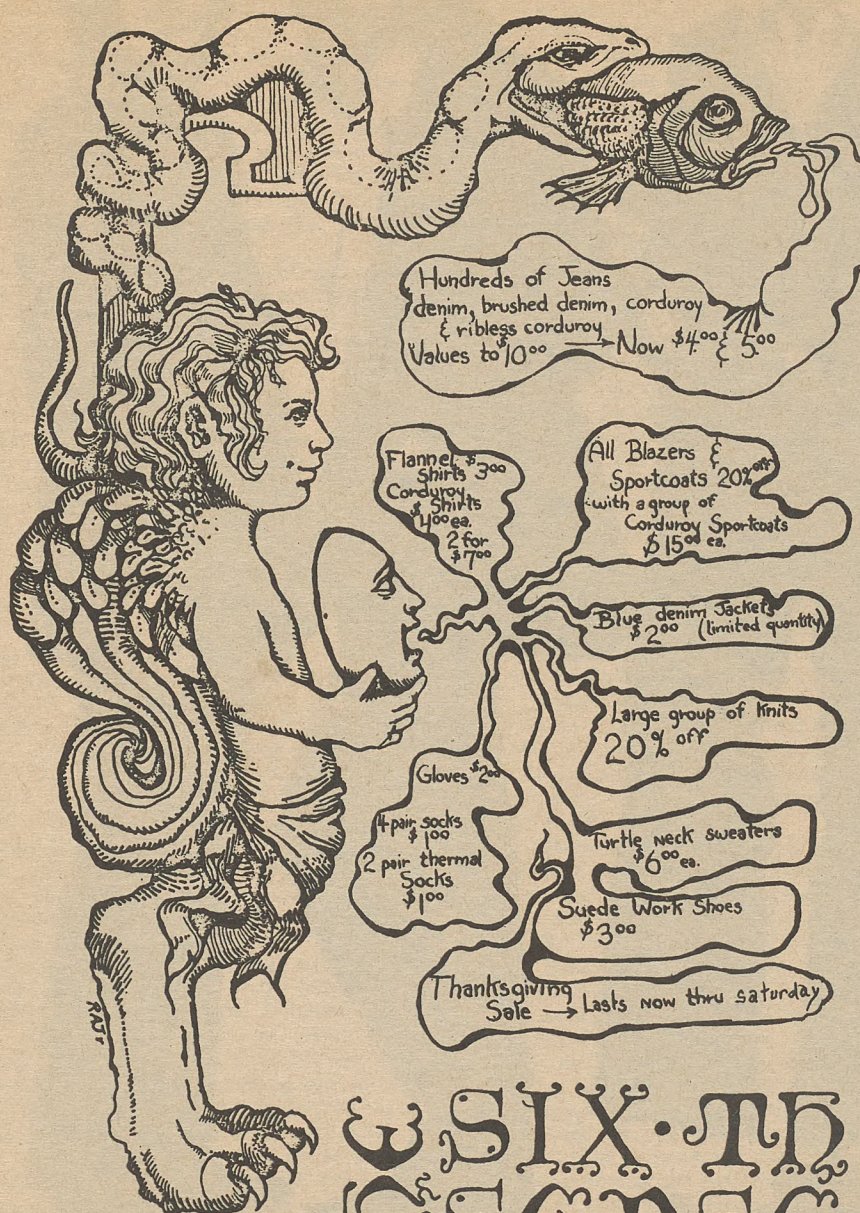 Hundreds of Jeans
denim, brushed denim, corduroy
& ribless corduroy
Values to $10.00 → Now $4.00 & 5.00
Flannel $3.00
Shirts
Corduroy
Shirts
$4.00 ea.
2 for
$7.00
All Blazers &
Sportcoats 20% off
with a group of
Corduroy Sportcoats
$15.00 ea.
Blue denim Jackets
$2.00 (limited quantity)
Large group of Knits
20% off
Gloves $2.00
4 pair socks
$1.00
2 pair thermal
Socks
$1.00
Turtle neck sweaters
$6.00 ea.
Suede Work Shoes
$3.00
Thanksgiving
Sale → Lasts now thru saturday
SIX·TH